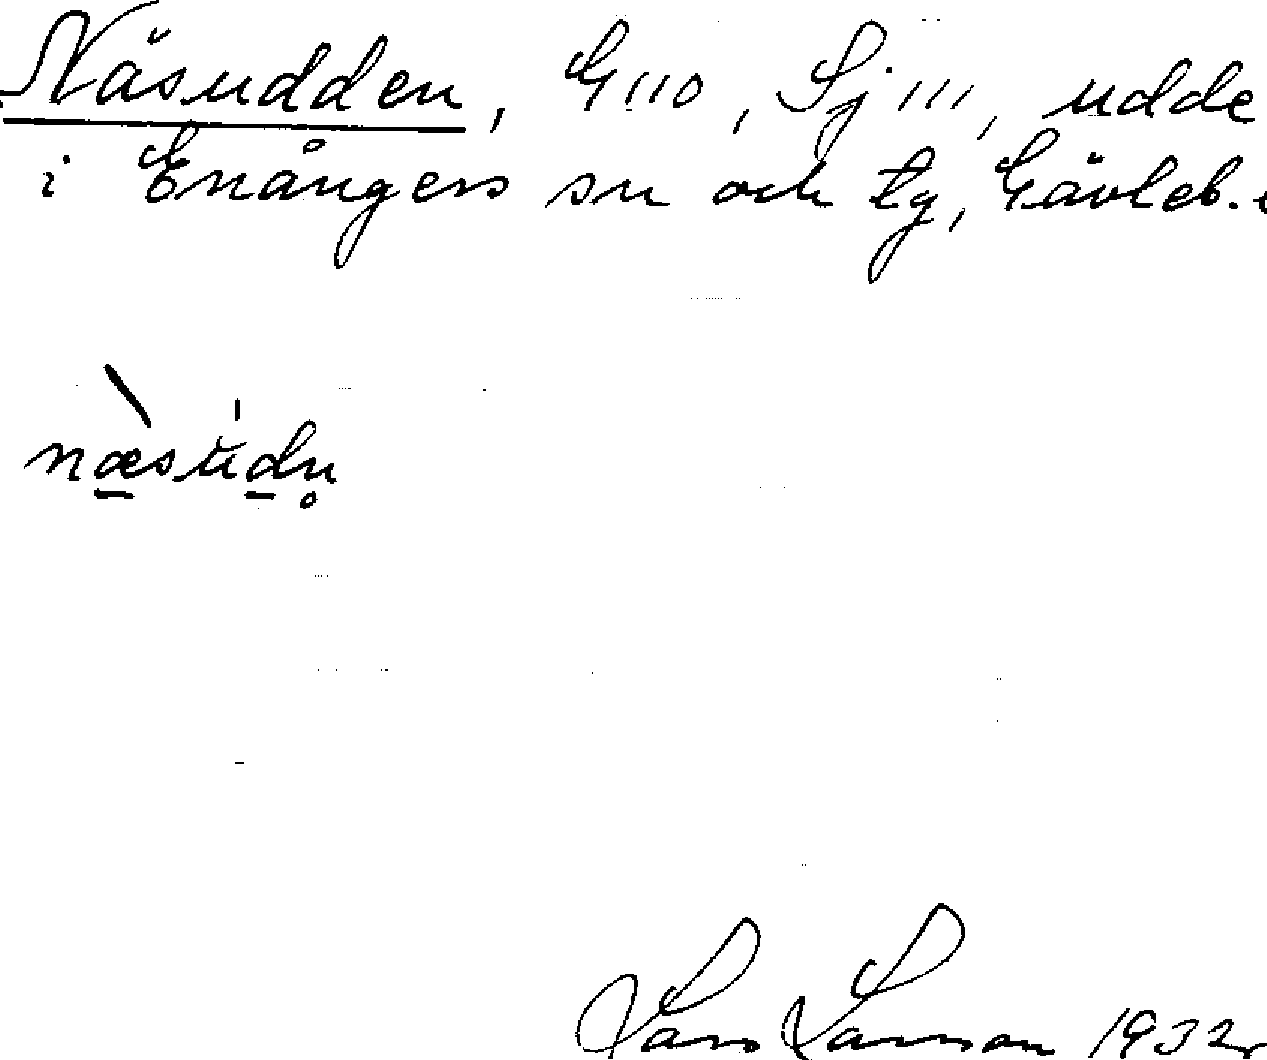 Näsudden, G 110, Sj 111, udde
i Enångers sn och tg, Gävleb.
næsudn̥
Lars Larsson 1932